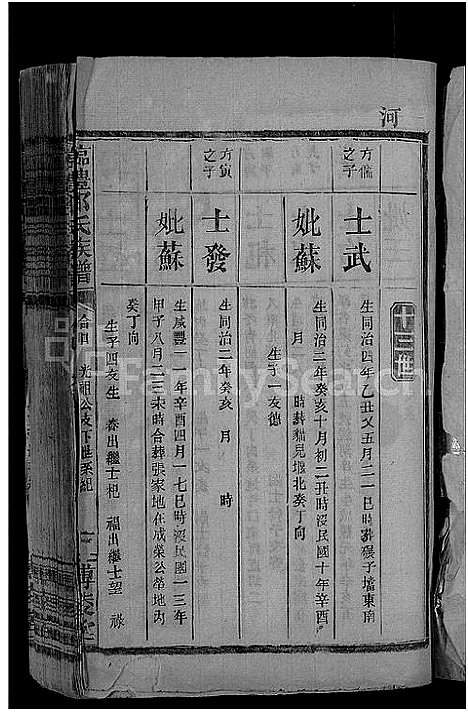 河
十三世
方倫之子
士武
生同治四年乙丑又五月二一巳時葬猴子壋東南
妣蘇
生同治二年癸亥十月初二丑時沒民國十年辛酉
月 時葬貓兒堰北癸丁向
生子一友德
方寅之子
士發
生同治二年癸亥 月 時
妣蘇
生咸豐一一年辛酉四月一七巳時沒民國一三年
甲子八月二三未時合葬張家地在成榮公塋地內
癸丁向
生子四友生 春出繼士杞 福出繼士望 祿
氏族譜
光祖公支下世系紀
FamilySearch